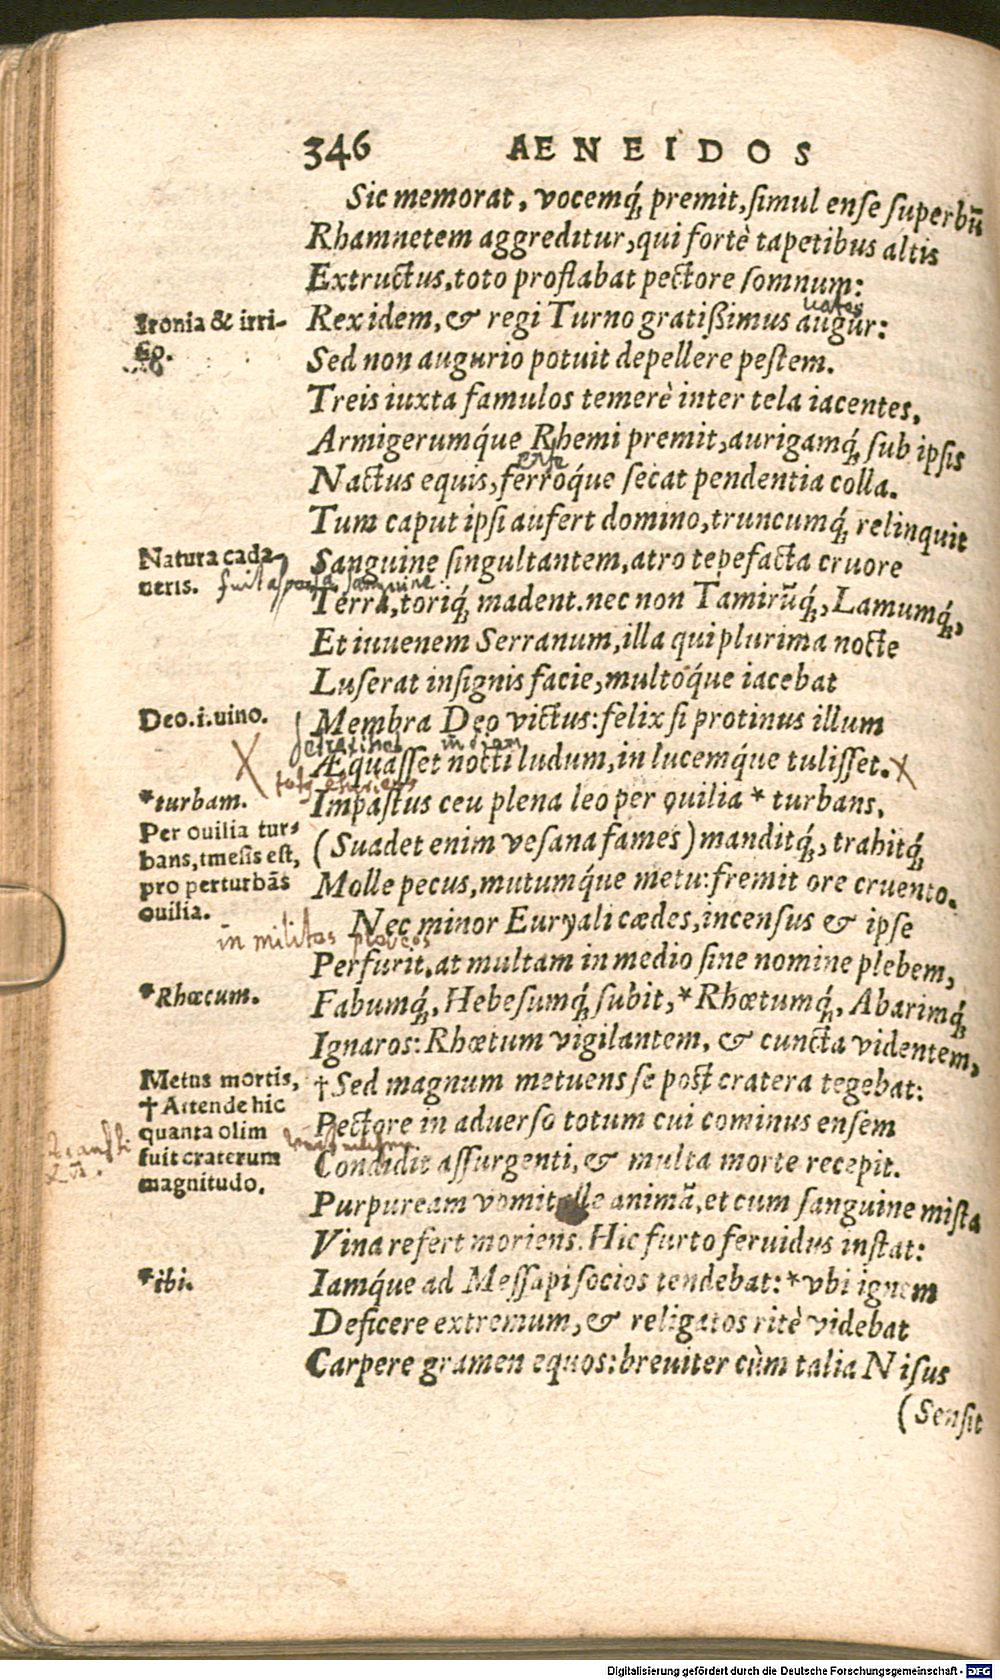 346 AENEIDOS
Sic memorat, vocemq́; premit, simul ense superbū
Rhamnetem aggreditur, qui fortè tapetibus altis
Extructus, toto proflabat pectore somnum:
uates
Ironia & irri-
sio.
Rex idem, & regi Turno gratißimus augur:
Sed non augurio potuit depellere pestem.
Treis iuxta famulos temerè inter tela iacentes,
Armigerumq́ue Rhemi premit, aurigamq́; sub ipsis
ense
Nactus equis, ferroq́ue secat pendentia colla.
Tum caput ipsi aufert domino, truncumq́; relinquit
Natura cada-
ueris.
Sanguine singultantem, atro tepefacta cruore
sanguine
Terra, toriq́; madent. nec non Tamirūq́;, Lamumq́;,
Et iuuenem Serranum, illa qui plurima nocte
Luserat insignis facie, multoq́ue iacebat
Deo.i.uino.
Membra Deo victus: felix si protinus illum
in diem
Æquasset nocti ludum, in lucemq́ue tulisset.
*turbam.
Impastus ceu plena leo per ouilia * turbans,
Per ouilia tur-
bans, tmesis est,
pro perturbās
ouilia.
(Suadet enim vesana fames) manditq́;, trahitq́;
Molle pecus, mutumq́ue metu: fremit ore cruento.
Nec minor Euryali cædes, incensus & ipse
in milites
Perfurit, at multam in medio sine nomine plebem,
*Rhœcum.
Fabumq́;, Hebesumq́; subit, *Rhœtumq́;, Abarimq́;
Ignaros: Rhœtum vigilantem, & cuncta videntem,
Metus mortis,
† Attende hic
quanta olim
fuit craterum
magnitudo.
†Sed magnum metuens se post cratera tegebat:
Pectore in aduerso totum cui cominus ensem
Condidit assurgenti, & multa morte recepit.
Purpuream vomit ille animā, et cum sanguine mista
Vina refert moriens. Hic furto feruidus instat:
*ibi.
Iamq́ue ad Messapi socios tendebat: *vbi ignem
Deficere extremum, & religatos ritè videbat
Carpere gramen equos: breuiter cùm talia Nisus
(Sensit
Digitalisierung gefördert durch die Deutsche Forschungsgemeinschaft - DFG